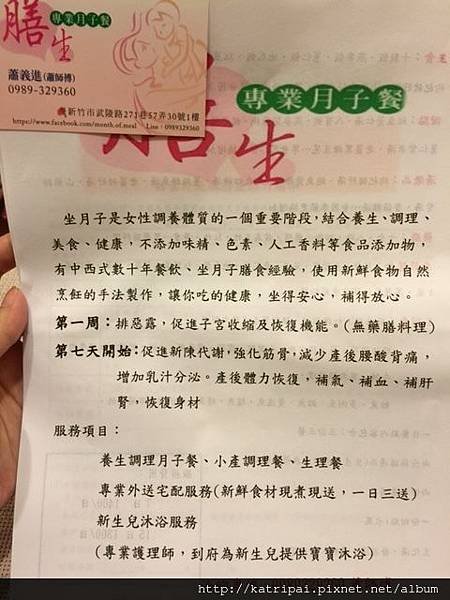 膳生
專業月子餐
蕭義進(蕭師傅)
0989-329360
新竹市武陵路271巷57弄30號1樓
https://www.facebook.com/month.of.meal Line:0989329360
專業月子餐
膳生
坐月子是女性調養體質的一個重要階段，結合養生、調理、
美食、健康，不添加味精、色素、人工香料等食品添加物，
有中西式數十年餐飲、坐月子膳食經驗，使用新鮮食物自然
烹飪的手法製作，讓你吃的健康，坐得安心，補得放心。
第一周：排惡露，促進子宮收縮及恢復機能。(無藥膳料理)
第七天開始：促進新陳代謝，強化筋骨，減少產後腰酸背痛，
增加乳汁分泌。產後體力恢復，補氣、補血、補肝
腎，恢復身材
服務項目：
養生調理月子餐、小產調理餐、生理餐
專業外送宅配服務(新鮮食材現煮現送，一日三送)
新生兒沐浴服務
(專業護理師，到府為新生兒提供寶寶沐浴)
http://katripai.pixnet.net/album